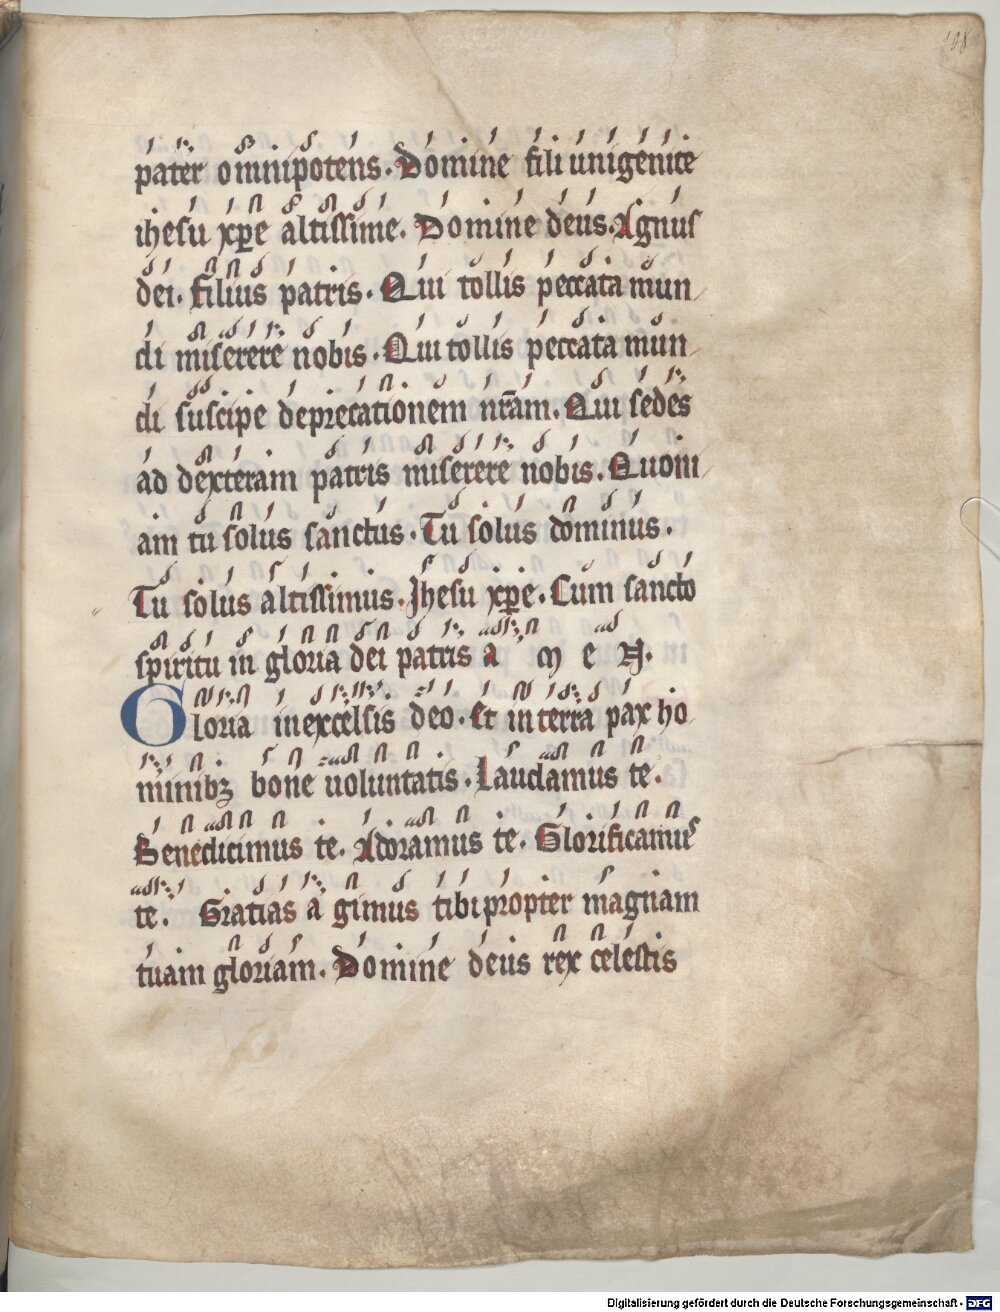 108
pater omnipotens. Domine fili unigenite
ihesu xp̄e altissime. Domine deus. Agnus
dei. filius patris. Qui tollis peccata mun
di miserere nobis. Qui tollis peccata mun
di suscipe deprecationem nr̄am. Qui sedes
ad dexteram patris miserere nobis. Quoni
am tu solus sanctus. Tu solus dominus.
Tu solus altissimus. Jhesu xp̄e. Cum sancto
spiritu in gloria dei patris a m e N.
Gloria in excelsis deo. Et in terra pax ho
minibꝫ bone uoluntatis. Laudamus te.
Benedicimus te. Adoramus te. Glorificamus
te. Gratias a gimus tibi propter magnam
tuam gloriam. Domine deus rex celestis
Digitalisierung gefördert durch die Deutsche Forschungsgemeinschaft - DFG